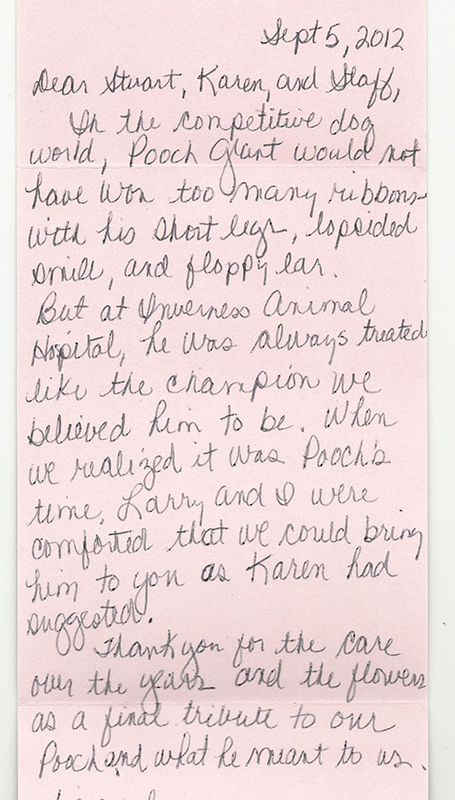 Sept 5, 2012
Dear Stuart, Karen, and Staff,
In the competitive dog
world, Pooch Grant would not
have won too many ribbons
with his short legs, lopsided
smile, and floppy ear.
But at Inverness Animal
Hopital, he was always treated
like the champion we
believed him to be. When
we realized it was Pooch's
time, Larry and I were
comforted that we could bring
him to you as Karen had
suggested.
Thank you for the care
over the years and the flowers
as a final tribute to our
Pooch and what he meant to us.